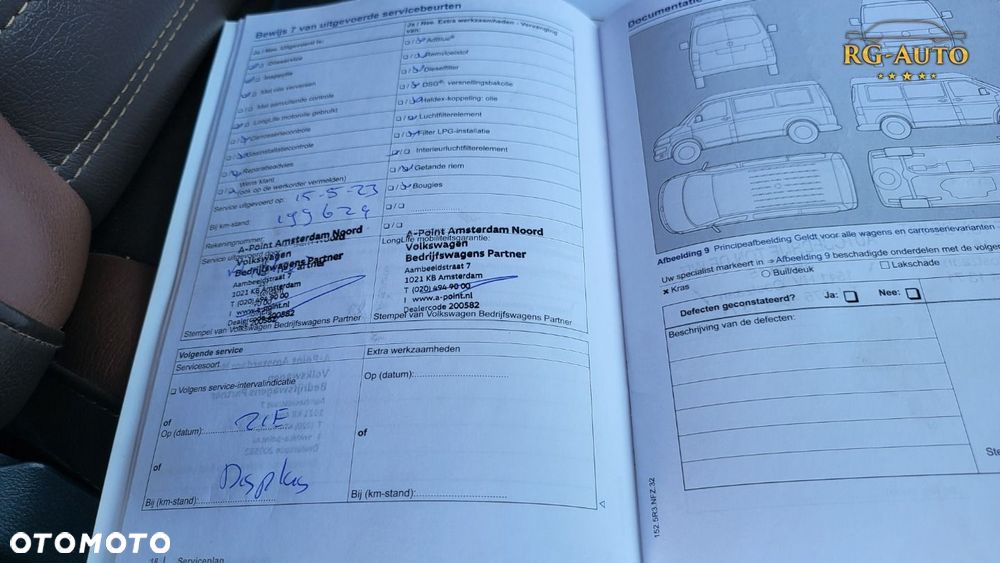 Bewijs 7 van uitgevoerde servicebeurten
Ja / Nee: Uitgevoerd is:
Olieservice
Inspectie
Met olie verversen
Met aanvullende controle
LongLife motorolie gebruikt
Carrosseriecontrole
Gasinstallatiecontrole
Reparatieadvies
Wens klant
(ook op de werkorder vermelden)
Service uitgevoerd op: 15-5-23
Bij km-stand: 199624
Rekeningnummer:
Service uitgevoerd door:
A-Point Amsterdam Noord
Volkswagen
Bedrijfswagens Partner
Aambeeldstraat 7
1021 KB Amsterdam
T (020) 494 90 00
I www.a-point.nl
Dealercode 200582
Stempel van Volkswagen Bedrijfswagens Partner
Ja / Nee: Extra werkzaamheden - Vervanging
van:
AdBlue®
Remvloeistof
Dieselfilter
DSG®- versnellingsbakolie
Haldex-koppeling: olie
Luchtfilterelement
Filter LPG-installatie
Interieurluchtfilterelement
Getande riem
Bougies
LongLife mobiliteitsgarantie:
A-Point Amsterdam Noord
Volkswagen
Bedrijfswagens Partner
Aambeeldstraat 7
1021 KB Amsterdam
T (020) 494 90 00
I www.a-point.nl
Dealercode 200582
Stempel van Volkswagen Bedrijfswagens Partner
Volgende service
Servicesoort
Volgens service-intervalindicatie
of
Op (datum):
of
Bij (km-stand):
Extra werkzaamheden
Op (datum):
of
Bij (km-stand):
16 | Serviceplan
Documentatie
RG-AUTO
Afbeelding 9 Principeafbeelding Geldt voor alle wagens en carrosserievarianten
Uw specialist markeert in ⇒ Afbeelding 9 beschadigde onderdelen met de volgen
× Kras
Buil/deuk
Lakschade
Defecten geconstateerd? Ja: Nee:
Beschrijving van de defecten:
Ste
152.5R3.NFZ.32
OTOMOTO